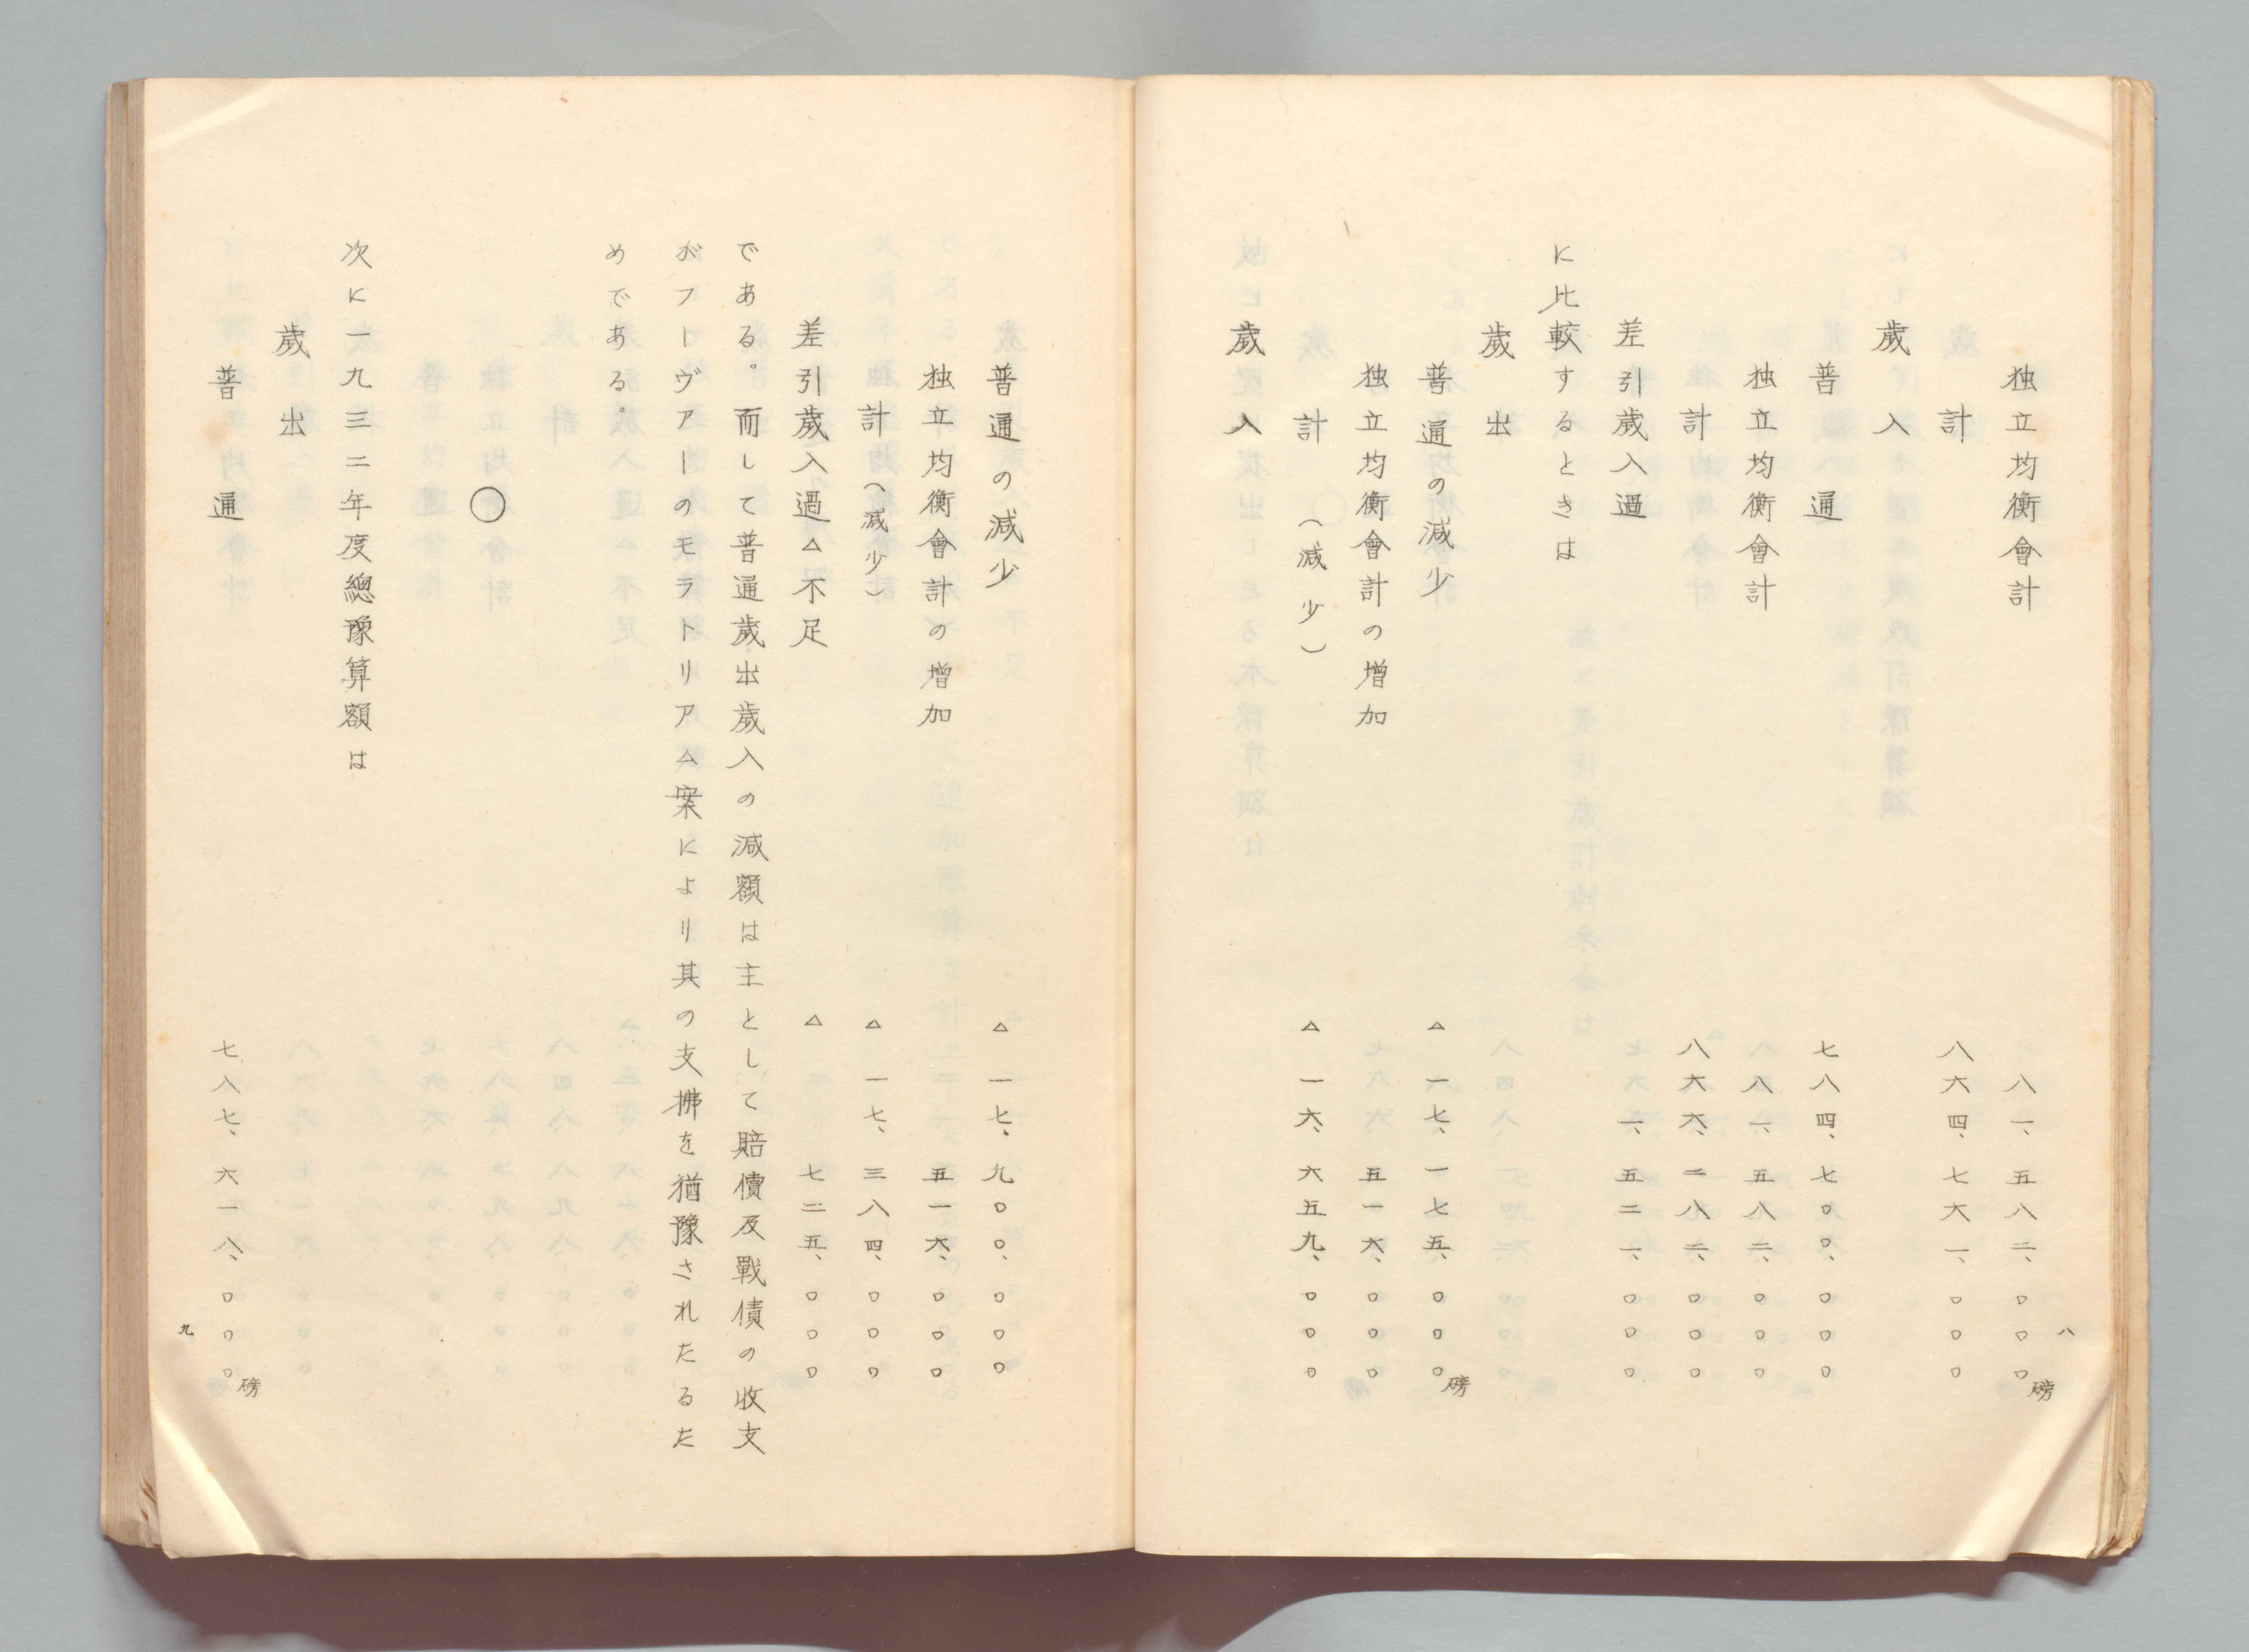 八
独立均衡會計 八一、五八二、〇〇〇磅
計 八六四、七六一、〇〇〇
歲入
普通 七八四、七〇〇、〇〇〇
独立均衡會計 八一、五八二、〇〇〇
計 八六六、二八二、〇〇〇
差引歲入過 一、五二一、〇〇〇
に比較するときは
歲出
普通の減少 △一七、一七五、〇〇〇磅
独立均衡會計の増加 五一六、〇〇〇
計(減少) △一六、六五九、〇〇〇
歲入
普通の減少 △一七、九〇〇、〇〇〇
独立均衡會計の増加 五一六、〇〇〇
計(減少) △一七、三八四、〇〇〇
差引歲入過△不足 △七二五、〇〇〇
である。而して普通歲出歲入の減額は主として賠償及戰債の收支
がフーヴアーのモラトリアム案により其の支拂を猶豫されたるた
めである。
〇
次に一九三二年度總豫算額は
歲出
普通 七八七、六一八、〇〇〇磅
九